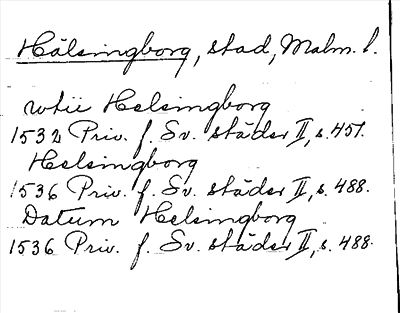 Hälsingborg, stad, Malm. l.
wtii Helsingborg
1532 Priv. f. Sv. städer II, s. 457.
Helsingborg
1536 Priv. f. Sv. städer II, s. 488.
Datum Helsingborg
1536 Priv. f. Sv. städer II, s. 488.